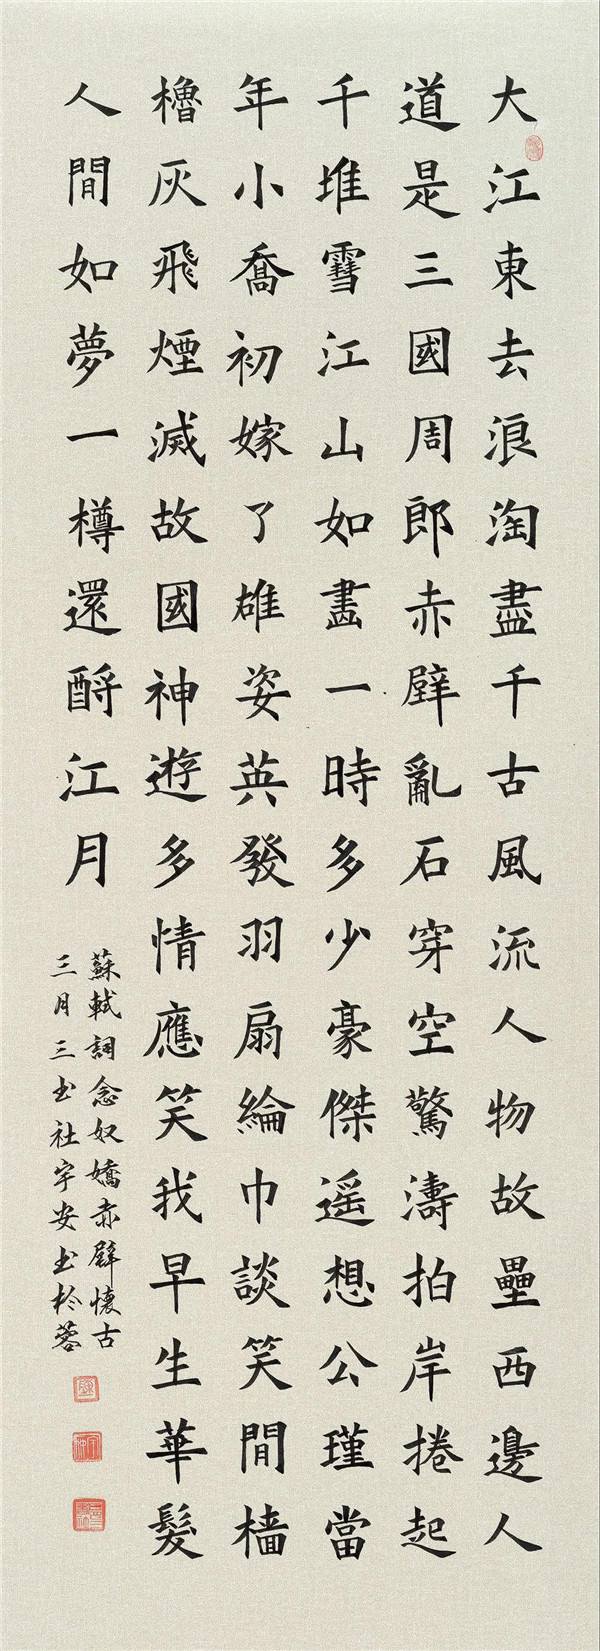 大江東去浪淘盡千古風流人物故壘西邊人
道是三國周郎赤壁亂石穿空驚濤拍岸捲起
千堆雪江山如畫一時多少豪傑遥想公瑾當
年小喬初嫁了雄姿英發羽扇綸巾談笑間檣
櫓灰飛煙滅故國神遊多情應笑我早生華髮
人間如夢一樽還酹江月
蘇軾詞念奴嬌赤壁懷古
三月三书社宇安书於蓉